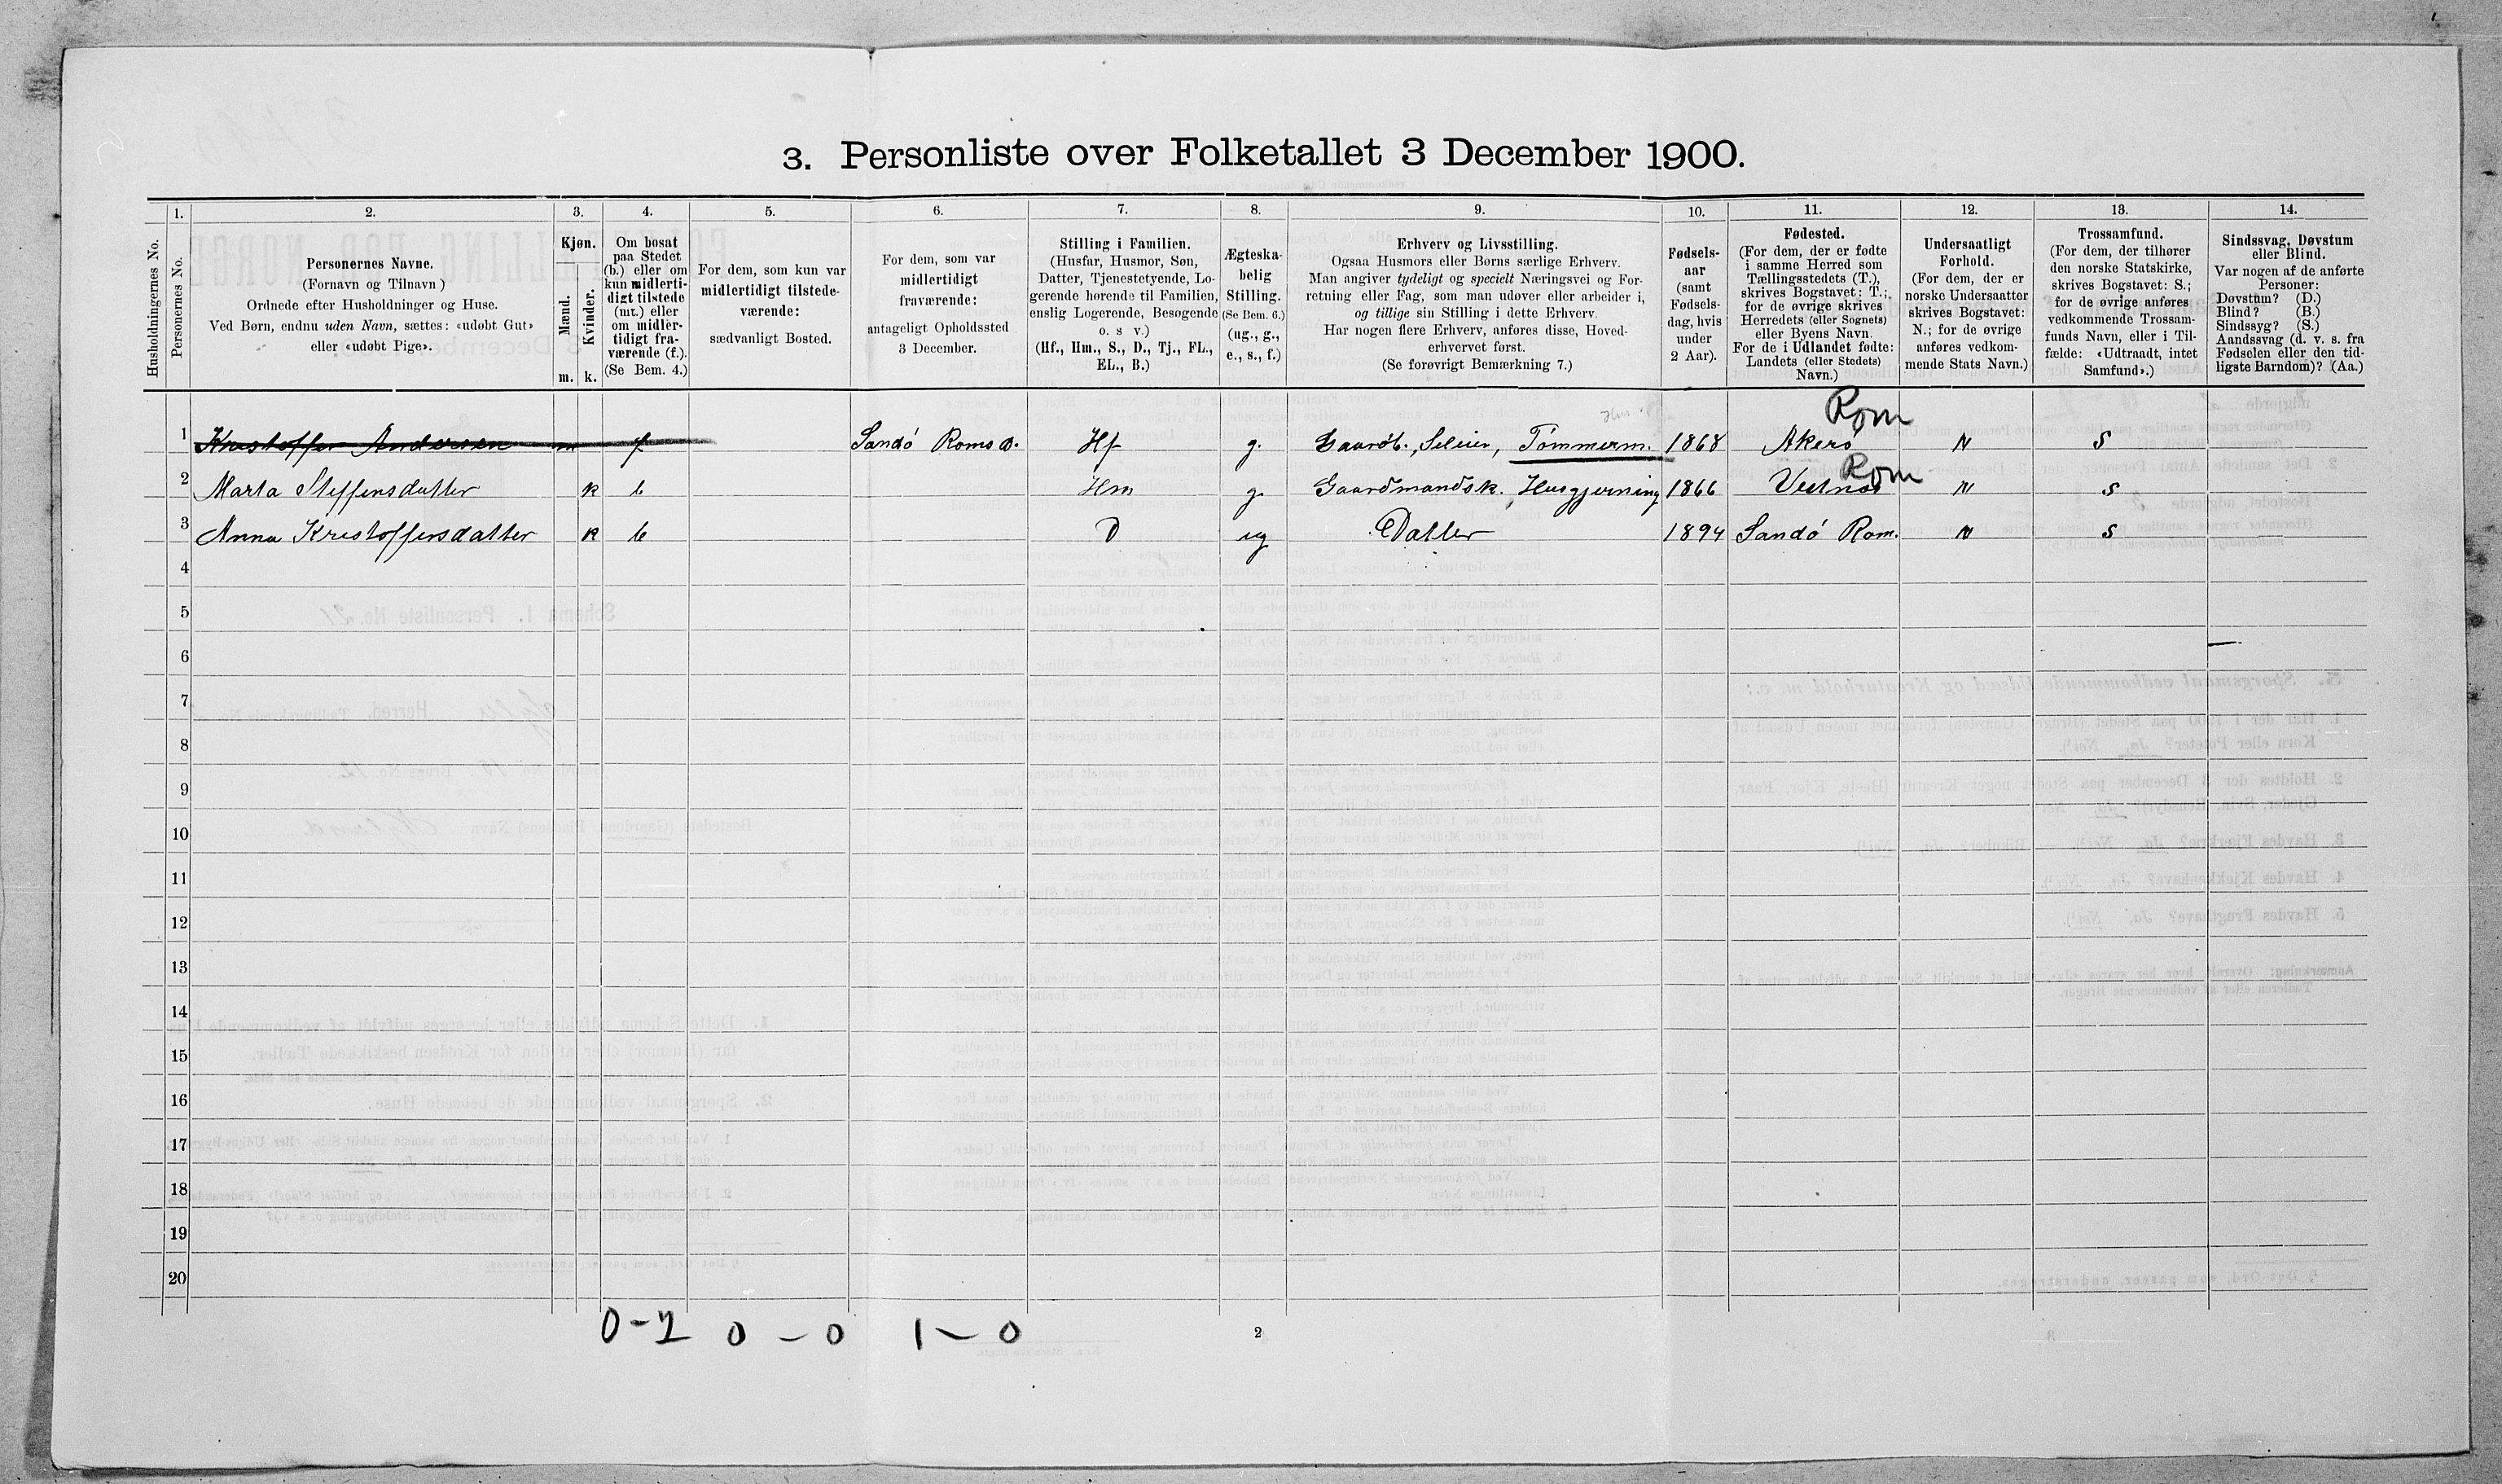 3. Personliste over Folketallet 3 December 1900.
Husholdningernes No.
1.
Personernes No.
2.
Personernes Navne.
(Fornavn og Tilnavn)
Ordnede efter Husholdninger og Huse.
Ved Børn, endnu uden Navn, sættes: «udøbt Gut»
eller «udøbt Pige».
3.
Kjøn.
Mænd.
Kvinder.
m. k.
4.
Om bosat
paa Stedet
(b.) eller om
kun midlerti-
digt tilstede
(mt.) eller
om midler-
tidigt fra-
værende (f.).
(Se Bem. 4.)
5.
For dem, som kun var
midlertidigt tilstede-
værende:
sædvanligt Bosted.
6.
For dem, som var
midlertidigt
fraværende:
antageligt Opholdssted
3 December.
7.
Stilling i Familien.
(Husfar, Husmor, Søn,
Datter, Tjenestetyende, Lo-
gerende hørende til Familien,
enslig Logerende, Besøgende
o. s v.)
(Hf., Hm., S., D., Tj., FL.,
EL., B.)
8.
Ægteska-
belig
Stilling.
(Se Bem. 6.)
(ug., g.,
e., s., f.)
9.
Erhverv og Livsstilling.
Ogsaa Husmors eller Børns særlige Erhverv.
Man angiver tydeligt og specielt Næringsvei og For-
retning eller Fag, som man udøver eller arbeider i,
og tillige sin Stilling i dette Erhverv.
Har nogen flere Erhverv, anføres disse, Hoved-
erhvervet først.
(Se forøvrigt Bemærkning 7.)
10.
Fødsels-
aar
(samt
Fødsels-
dag, hvis
under
2 Aar).
11.
Fødested.
(For dem, der er fødte
i samme Herred som
Tællingsstedets (T.),
skrives Bogstavet: T.;
for de øvrige skrives
Herredets (eller Sognets)
eller Byens Navn.
For de i Udlandet fødte:
Landets (eller Stedets)
Navn.)
12.
Undersaatligt
Forhold.
(For dem, der er
norske Undersaatter
skrives Bogstavet:
N.; for de øvrige
anføres vedkom-
mende Stats Navn.)
13.
Trossamfund.
(For dem, der tilhører
den norske Statskirke,
skrives Bogstavet: S.;
for de øvrige anføres
vedkommende Trossam-
funds Navn, eller i Til-
fælde: «Udtraadt, intet
Samfund».)
14.
Sindssvag, Døvstum
eller Blind.
Var nogen af de anførte
Personer:
Døvstum? (D.)
Blind? (B.)
Sindssyg? (S.)
Aandssvag (d. v. s. fra
Fødselen eller den tid-
ligste Barndom)? (Aa.)
Rom
1 Kristoffer Andersen m f Sandö Roms a. Hf g. Gaardb., Seleier, Tömmerm. 1868 Akerö N S
Rom
2 Marta Steffensdatter k b Hm g. Gaardmandsk. Husgjerning 1866 Vestnæs N S
3 Anna Kristoffersdatter k b D ug Datter 1894 Sandö Rom. N S
4
5
6
7
8
9
10
11
12
13
14
15
16
17
18
19
20
0-2 0-0 1-0
2